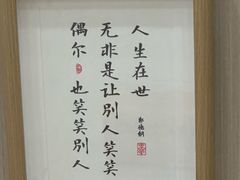 人生在世
无非是让别人笑笑
偶尔也笑笑别人
郭德纲